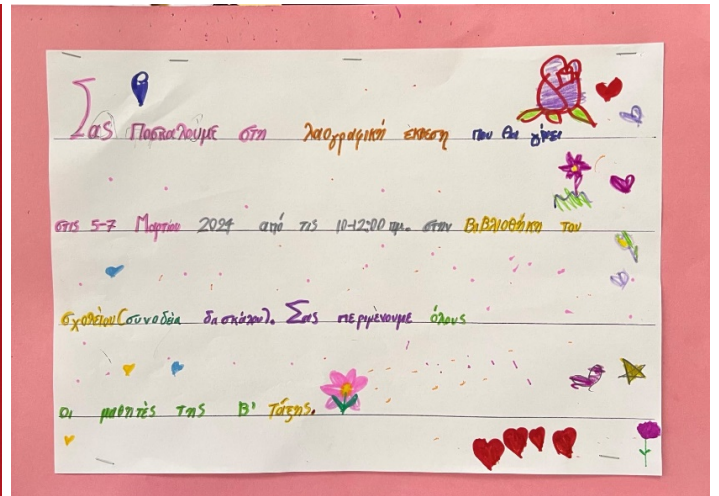 Σας Ποσκαλούμε στη λαογραφική έκθεση που θα γίνει
στις 5-7 Μαρτίου 2024 από τις 10-12:00 πμ. στην Βιβλιοθήκη του
σχολείου (συνοδεία δασκάλου). Σας περιμένουμε όλους
Οι μαθητές της Β' Τάξης.